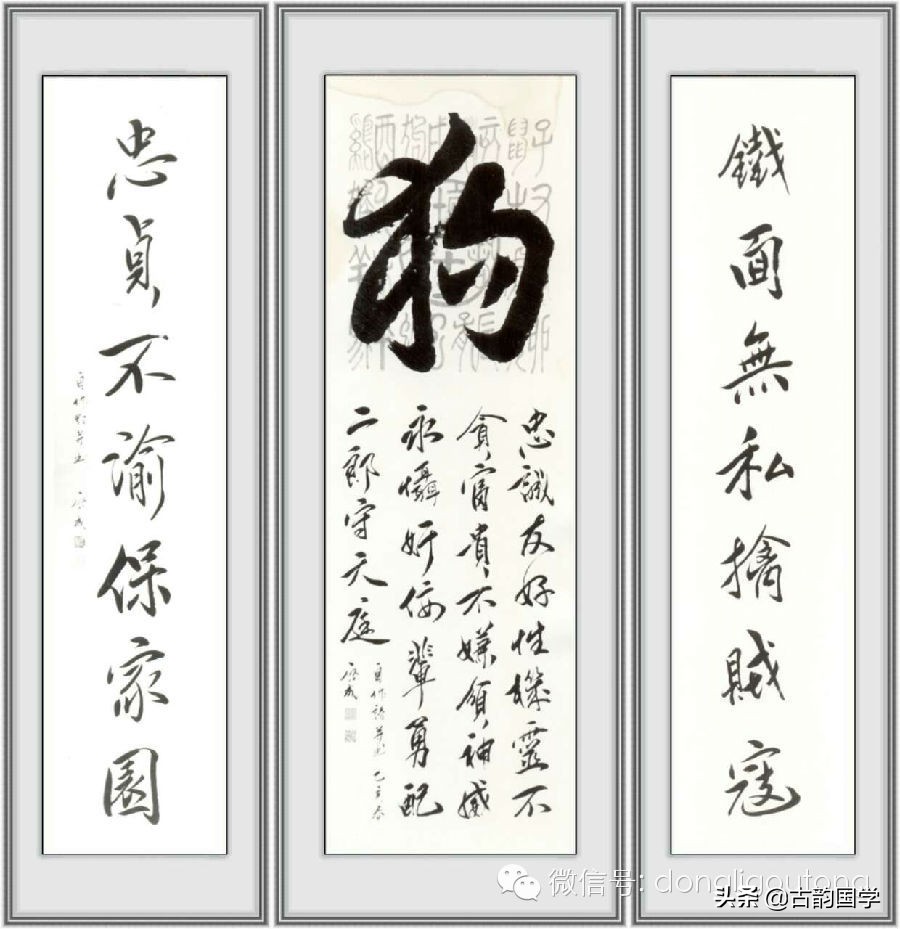 鐵面無私擒賊寇
狗
忠誠友好性機靈不
貪富貴不嫌貧神威
永懾奸佞輩勇配
二郎守天庭
自作詩並書 乙亥春
忠貞不渝保家園
微信号: dongligoutong
头条 @古韵国学